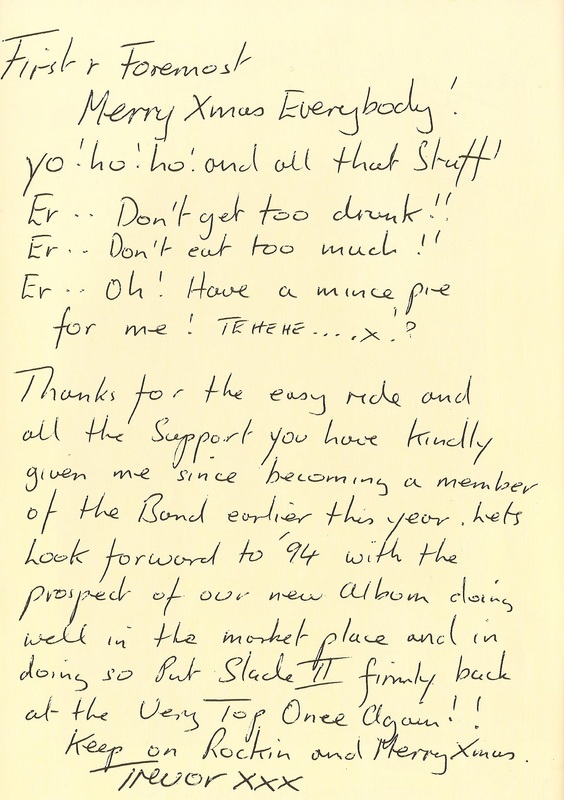 First & Foremost
Merry Xmas Everybody!
yo! ho! ho! and all that Stuff!
Er.. Don't get too drunk!!
Er.. Don't eat too much!!
Er.. Oh! Have a mince pie
for me! TEHEHE.....x!?
Thanks for the easy ride and
all the Support you have kindly
given me since becoming a member
of the Band earlier this year. Lets
Look forward to '94 with the
prospect of our new Album doing
well in the market place and in
doing so Put Slade II firmly back
at the Very Top Once Again!!
Keep on Rockin and Merry Xmas.
Trevor XXX